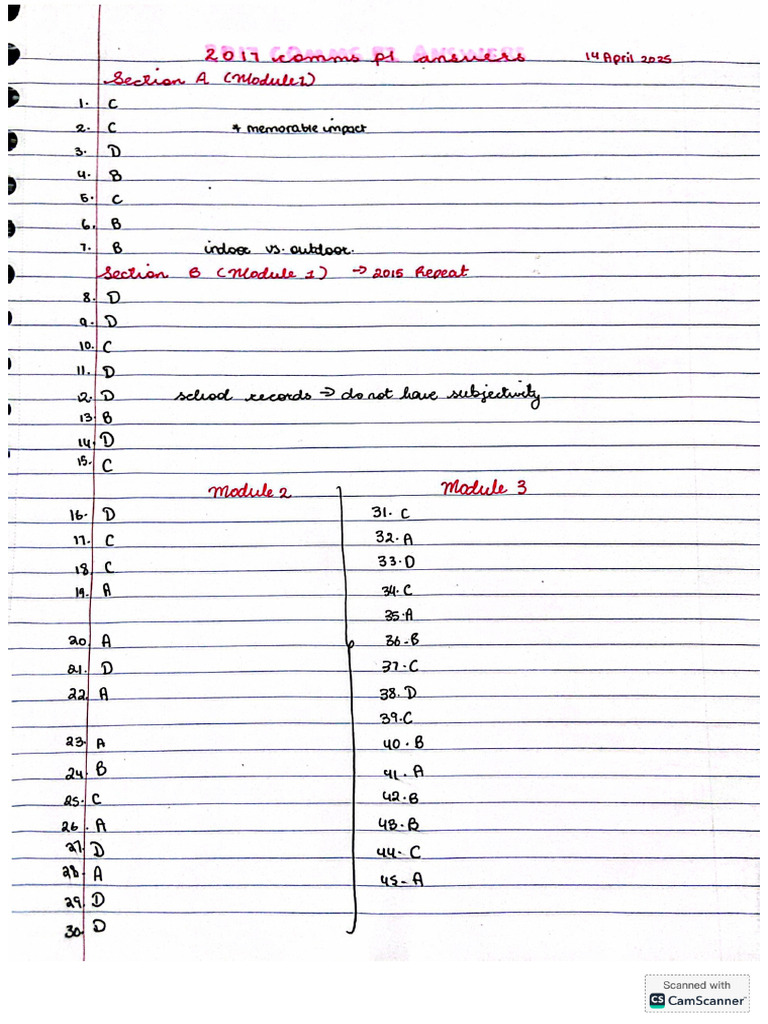 2017 comms p1 answers
14 April 2025
Section A (Module 1)
1. C
2. C * memorable impact
3. D
4. B
5. C
6. B
7. B indoor vs. outdoor.
Section B (Module 1) → 2015 Repeat
8. D
9. D
10. C
11. D
12. D school records → do not have subjectivity
13. B
14. D
15. C
Module 2
16. D
17. C
18. C
19. A
20. A
21. D
22. A
23. A
24. B
25. C
26. A
27. D
28. A
29. D
30. D
Module 3
31. C
32. A
33. D
34. C
35. A
36. B
37. C
38. D
39. C
40. B
41. A
42. B
43. B
44. C
45. A
Scanned with
CS CamScanner